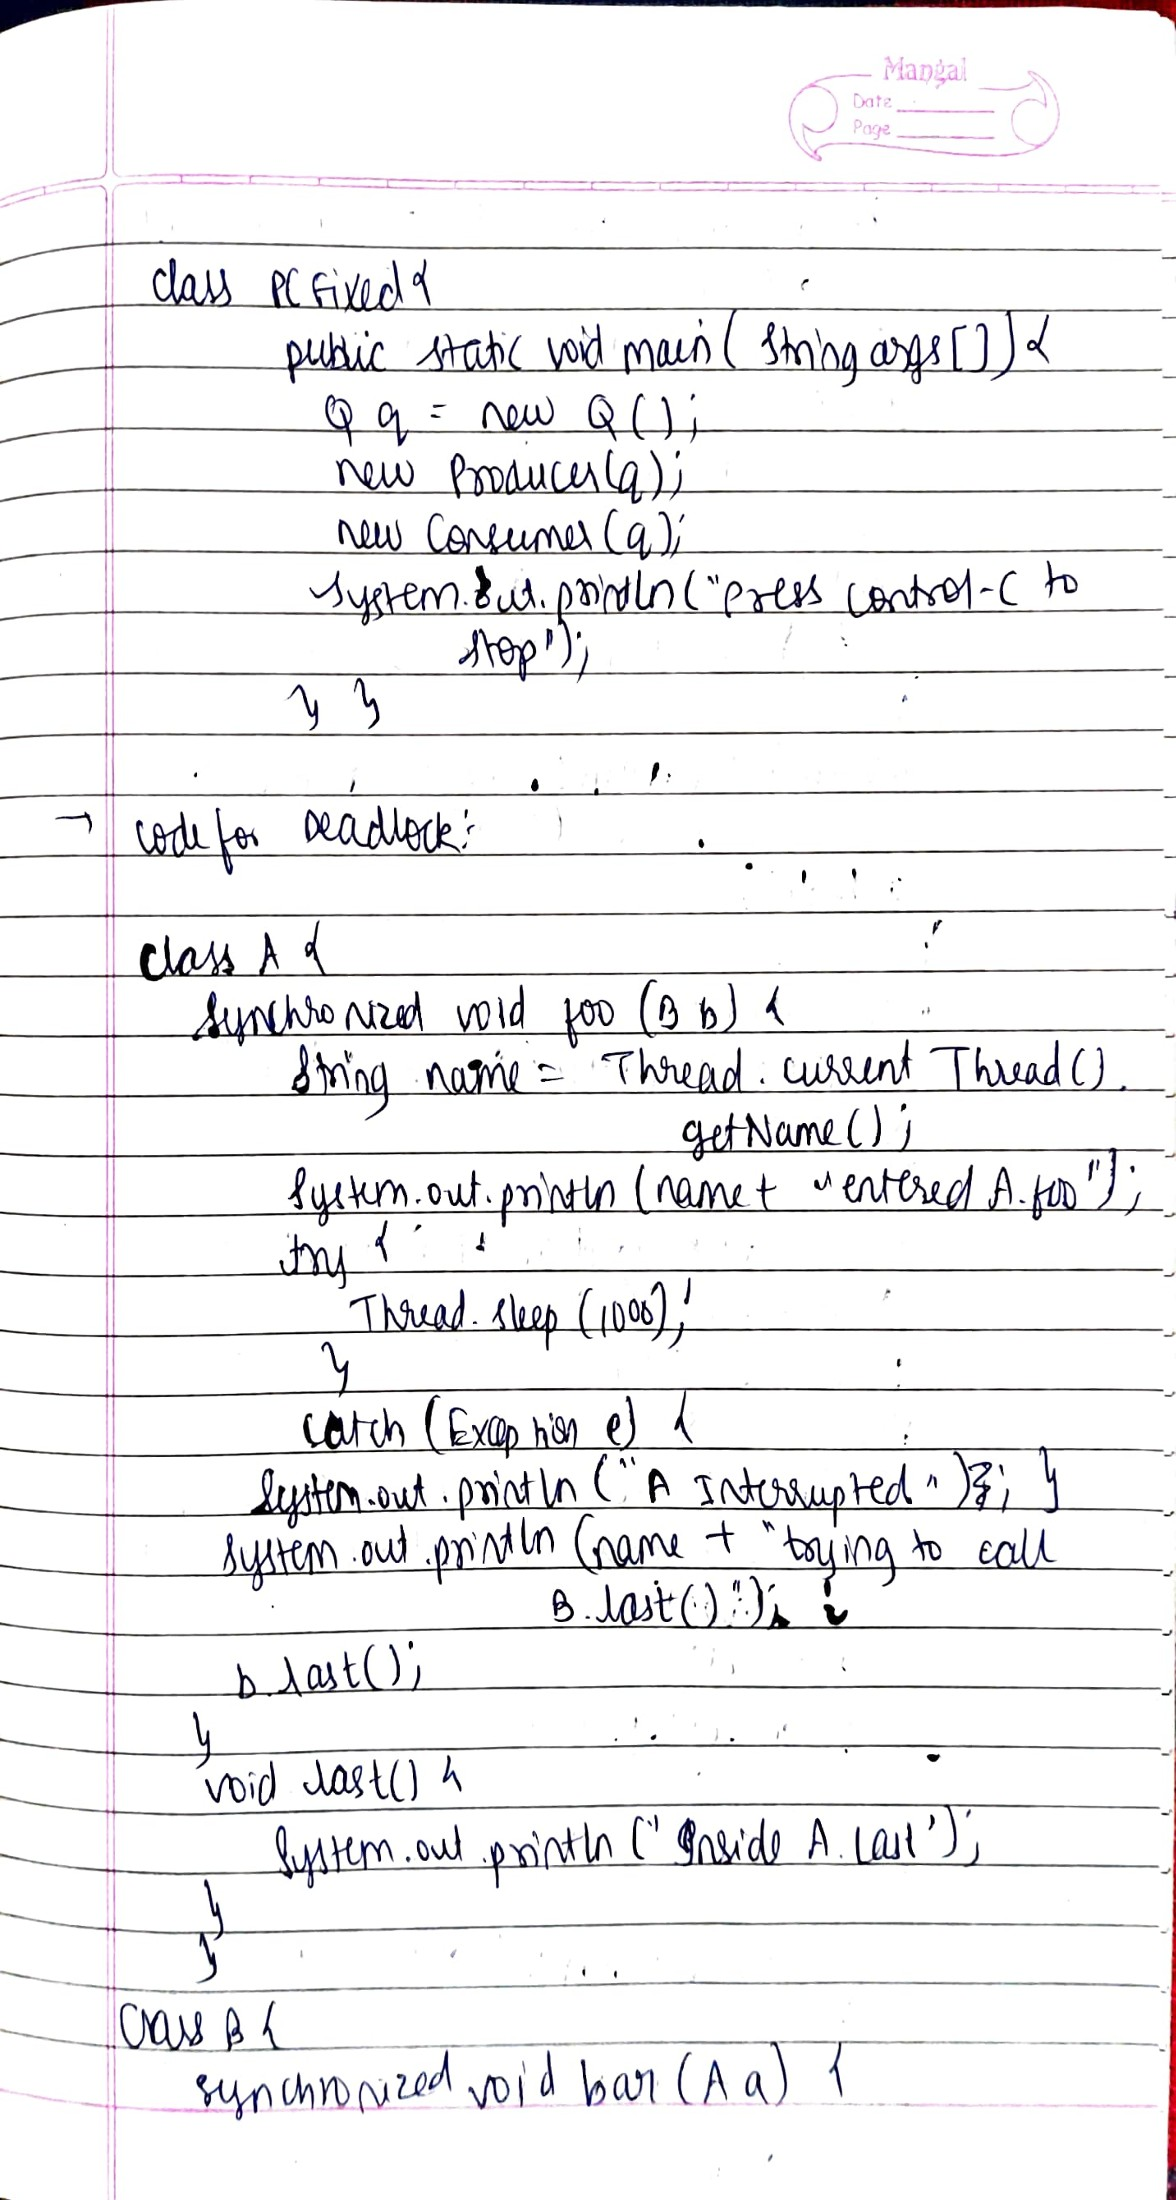 Mangal
Date
Page
class PCFixed{
public static void main( String args[]) {
Q q = new Q();
new Producer(q);
new Consumer(q);
System.out.println("Press Control-C to
stop");
} }
→ code for Deadlock:
class A {
synchronized void foo (B b) {
String name = Thread.currentThread().
getName();
System.out.println (name+ "entered A.foo");
try {
Thread.sleep (1000);
}
catch (Exception e) {
System.out.println ("A Interrupted"); }
System.out.println (name + "trying to call
B.last()");
b.last();
}
void last() {
System.out.println ("Inside A.last");
}
}
class B {
synchronized void bar (A a) {